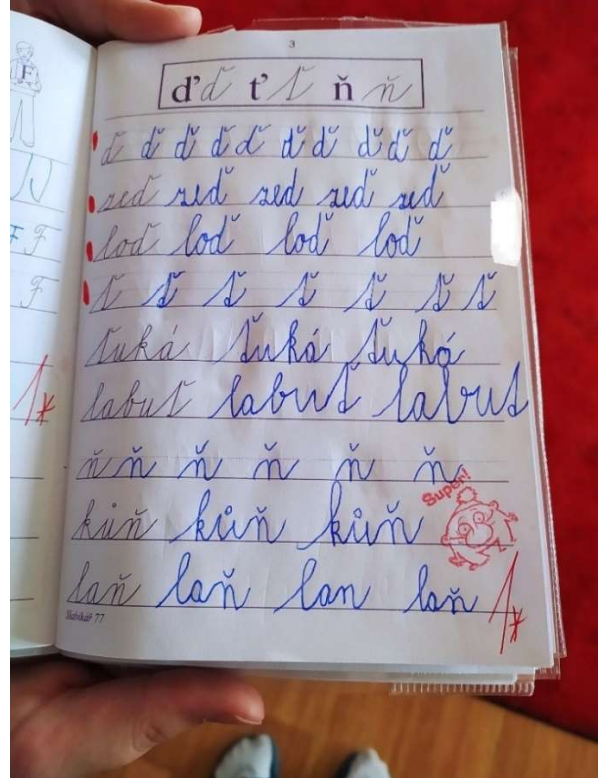 3
ď ď ť ť ň ň
ď ď ď ď ď ď ď ď ď ď
zeď zeď zed zeď zeď
loď loď loď loď
ť ť ť ť ť ť ť
ťuká ťuká ťuká
labuť labuť labut
ň ň ň ň ň ň
Super!
kůň kůň kůň
laň laň lan laň 1*
Slabikář 77
F
F F
F
1*